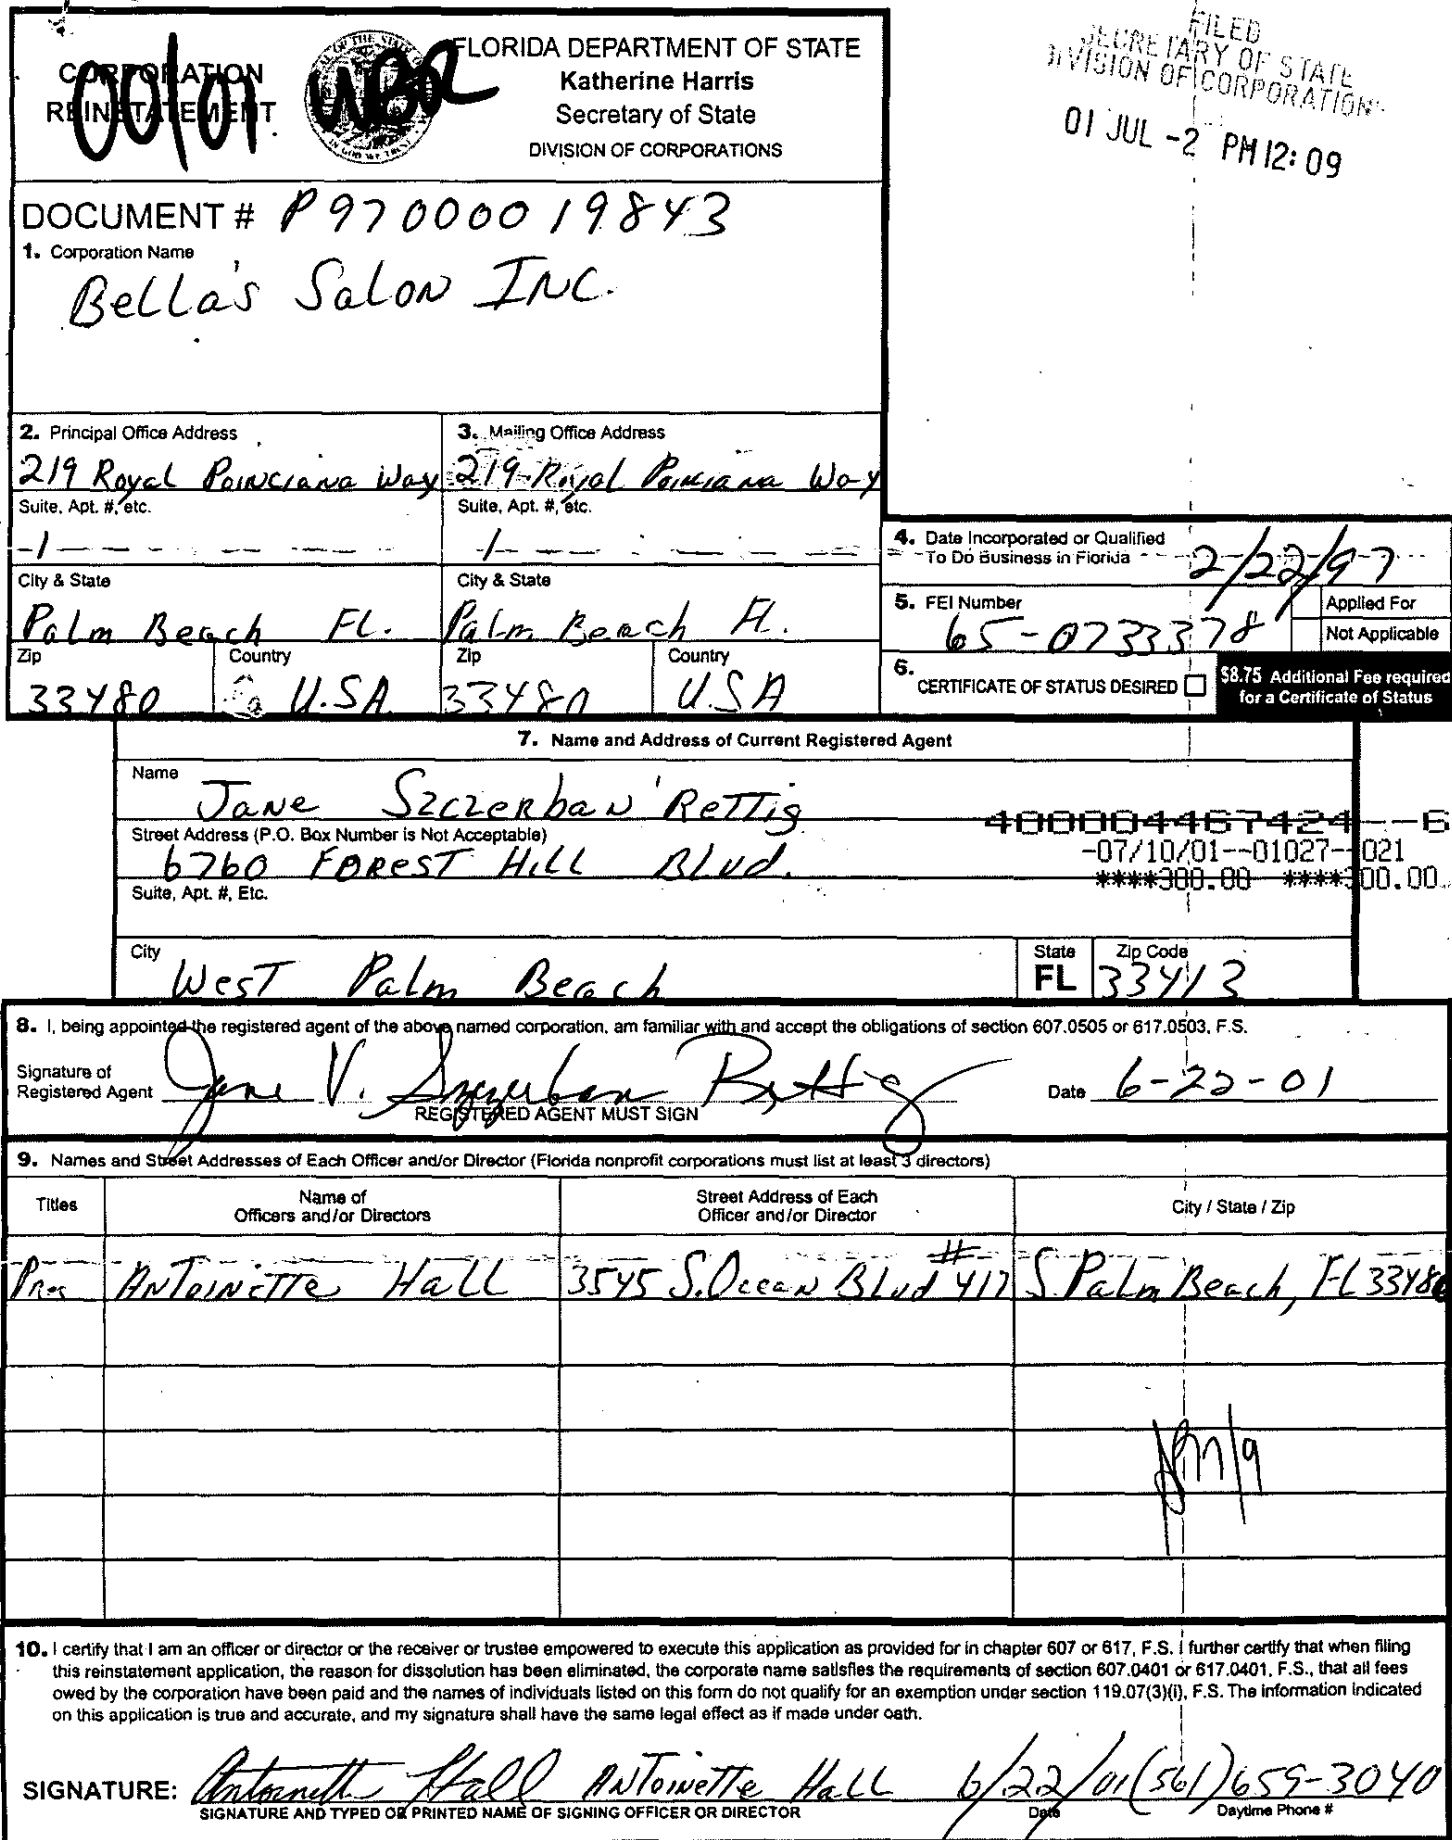 CORPORATION
REINSTATEMENT
00/01 UBR
FLORIDA DEPARTMENT OF STATE
Katherine Harris
Secretary of State
DIVISION OF CORPORATIONS
FILED
SECRETARY OF STATE
DIVISION OF CORPORATIONS
01 JUL -2 PM 12:09
DOCUMENT # P97000019843
1. Corporation Name
Bella's Salon INC.
2. Principal Office Address
219 Royal Poinciana Way
Suite, Apt. #, etc.
-1
City & State
Palm Beach FL.
Zip Country
33480 U.S.A.
3. Mailing Office Address
219 Royal Poinciana Way
Suite, Apt. #, etc.
City & State
Palm Beach Fl.
Zip Country
33480 U.S.A
4. Date Incorporated or Qualified
To Do Business in Florida 2/22/97
5. FEI Number
65-0733378
Applied For
Not Applicable
6.
CERTIFICATE OF STATUS DESIRED
$8.75 Additional Fee required
for a Certificate of Status
7. Name and Address of Current Registered Agent
Name
Jane Szczerban Rettig
Street Address (P.O. Box Number is Not Acceptable)
6760 Forest Hill Blvd.
400004467424--6
-07/10/01--01027--021
****300.00 ****300.00
Suite, Apt. #, Etc.
City
West Palm Beach
State
FL
Zip Code
33413
8. I, being appointed the registered agent of the above named corporation, am familiar with and accept the obligations of section 607.0505 or 617.0503, F.S.
Signature of
Registered Agent Jane V. Szczerban Rettig
Date 6-22-01
REGISTERED AGENT MUST SIGN
9. Names and Street Addresses of Each Officer and/or Director (Florida nonprofit corporations must list at least 3 directors)
Titles
Name of
Officers and/or Directors
Street Address of Each
Officer and/or Director
City / State / Zip
Pres Antoinette Hall 3545 S. Ocean Blvd #417 S. Palm Beach, FL 33480
10. I certify that I am an officer or director or the receiver or trustee empowered to execute this application as provided for in chapter 607 or 617, F.S. I further certify that when filing
this reinstatement application, the reason for dissolution has been eliminated, the corporate name satisfies the requirements of section 607.0401 or 617.0401, F.S., that all fees
owed by the corporation have been paid and the names of individuals listed on this form do not qualify for an exemption under section 119.07(3)(i), F.S. The information indicated
on this application is true and accurate, and my signature shall have the same legal effect as if made under oath.
SIGNATURE: Antoinette Hall Antoinette Hall 6/22/01 (561) 659-3040
SIGNATURE AND TYPED OR PRINTED NAME OF SIGNING OFFICER OR DIRECTOR
Date
Daytime Phone #